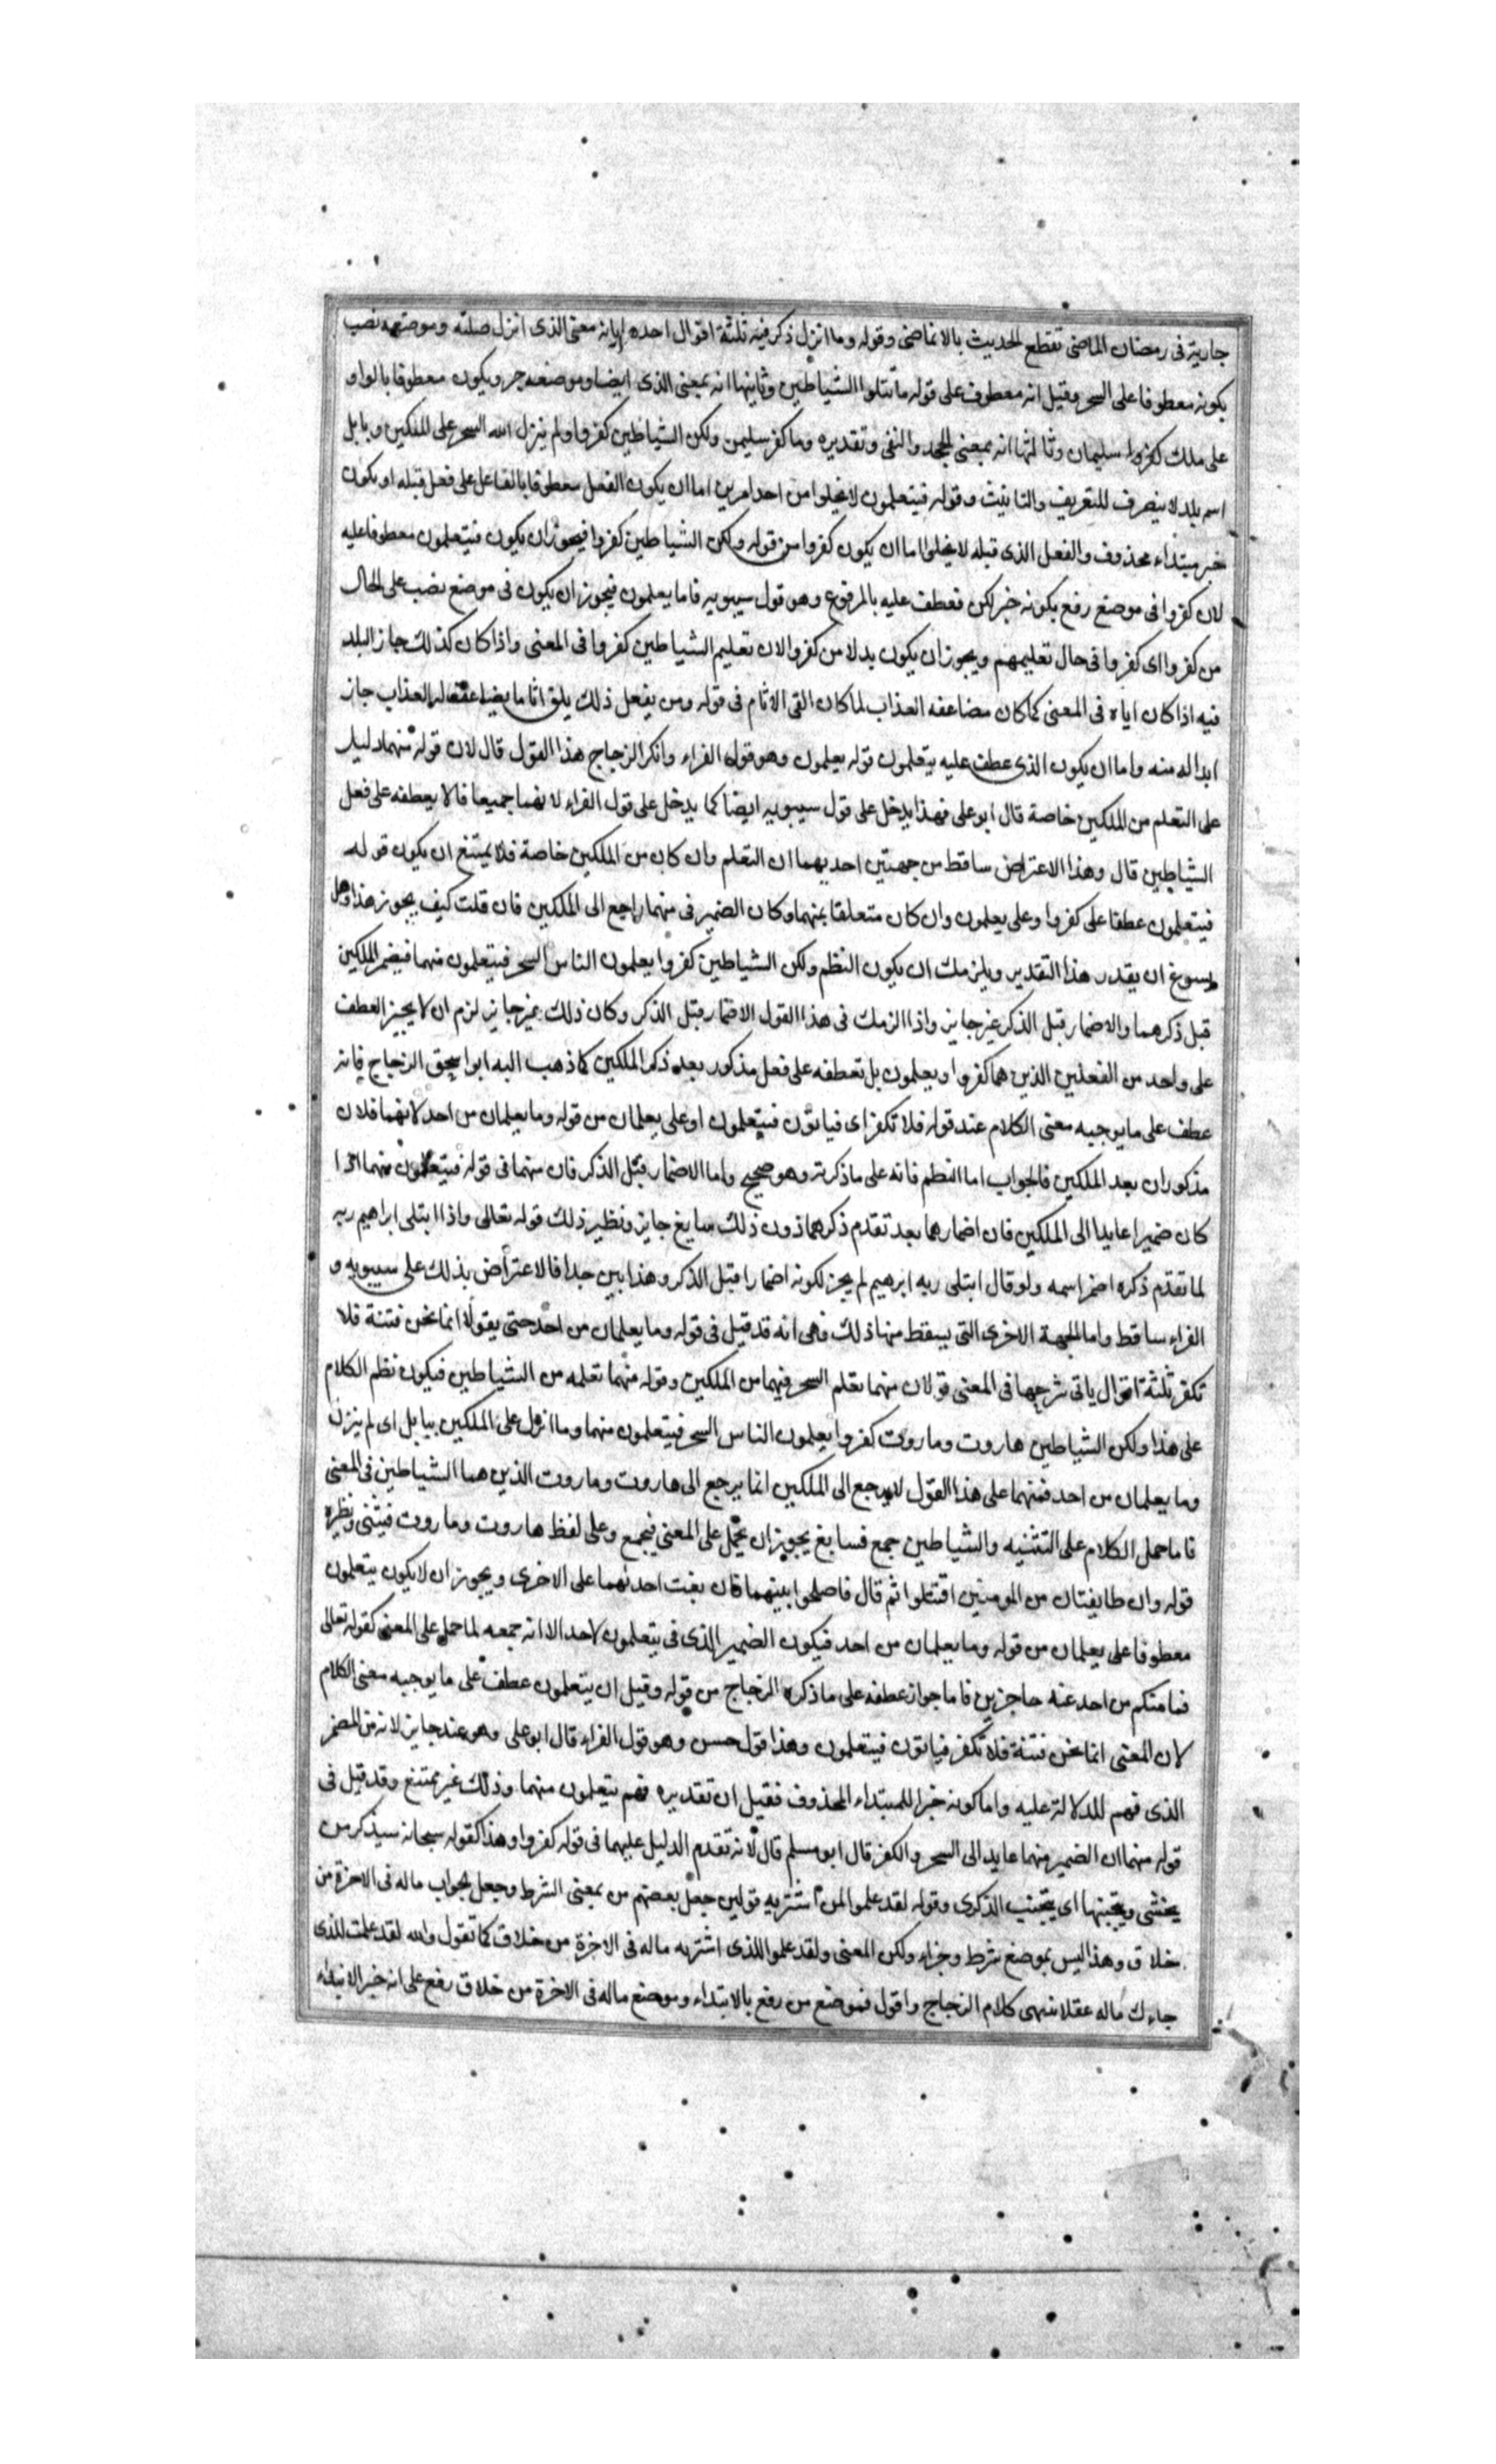 جارية فى رمضان الماضى تقطع الحديث بالانماضى وقوله وما انزل ذكر فيه ثلثة اقوال احدها انه بمعنى الذى انزل صلته وموضعه نصب
بكونه معطوفا على السحر وقيل انه معطوف على قوله ما تتلوا الشياطين وثاينها انه بمعنى الذى ايضا وموضعه جر ويكون معطوفا بالواو
على ملك سليمان وثالثها انه بمعنى الجحد والنفى وتقديره وما كفر سليمن ولكن الشياطين كفروا ولم ينزل الله السحر على الملكين وبابل
اسم بلد لا ينصرف للتعريف والتانيث وقوله فيتعلمون لا يخلوا من احد امرين اما ان يكون الفعل معطوفا بالفاعل على فعل قبله او يكون
خبر مبتداء محذوف والفعل الذى قبله لا يخلوا اما ان يكون كفروا من قوله ولكن الشياطين كفروا فيجوز ان يكون فيتعلمون معطوفا عليه
لان كفروا فى موضع رفع بكونه خبر لكن فعطف عليه بالمرفوع وهو قول سيبويه فاما يعلمون فيجوز ان يكون فى موضع نصب على الحال
من كفروا اى كفروا فى حال تعليمهم ويجوز ان يكون بدلا من كفروا لان تعليم الشياطين كفروا فى المعنى واذا كان كذلك جاز البلد
فيه اذا كان اياه فى المعنى كما كان مضاعفه العذاب لما كان القى الاثام فى قوله ومن يفعل ذلك يلق اثاما يضاعف له العذاب جاز
ابداله منه واما ان يكون الذى عطف عليه يتعلمون قوله يعلمون وهو قول الفراء وانكر الزجاج هذا القول قال لان قوله منهما دليل
على التعلم من الملكين خاصة قال ابو على فهذا يدخل على قول سيبويه ايضا كما يدخل على قول الفراء لانهما جميعا قالا يعطفه على فعل
الشياطين قال وهذا الاعتراض ساقط من جهتين احديهما ان التعلم وان كان من الملكين خاصة فلا يمتنع ان يكون قوله
فيتعلمون عطفا على كفروا وعلى يعلمون وان كان متعلقا بمنهما وكان الضمير فى منهما راجع الى الملكين فان قلت كيف يجوز هذا وهل
يسوغ ان يقدر هذا التقدير ويلزمك ان يكون النظم ولكن الشياطين كفروا يعلمون الناس السحر فيتعلمون منهما فيضمر الملكين
قبل ذكرهما والاضمار قبل الذكر غير جايز واذا الزمك فى هذا القول الاضمار قبل الذكر وكان ذلك غير جايز لزم ان لا يجيز العطف
على واحد من الفعلين الذين هما كفروا ويعلمون بل تعطفه على فعل مذكور بعد ذكر الملكين كما ذهب اليه ابو اسحق الزجاج فانه
عطف على ما يوجبه معنى الكلام عند قوله فلا تكفر اى فيابون فيتعلمون او على يعلمان من قوله وما يعلمان من احد لانهما فلان
مذكوران بعد الملكين فالجواب اما النظم فانه على ما ذكرته وهو صحيح واما الاضمار قبل الذكر فان منهما فى قوله فيتعلمون منهما اذا
كان ضميرا عايدا الى الملكين فان اضمارهما بعد تقدم ذكرهما ذون ذلك سايغ جايز ونظير ذلك قوله تعالى واذا ابتلى ابراهيم ربه
لما تقدم ذكره اضمر اسمه ولو قال ابتلى ربه ابرهيم لم يجز لكونه اضمارا قبل الذكر وهذا بين جدا فالاعتراض بذلك على سيبويه و
الفراء ساقط واما الجهة الاخرى التى يسقط منها ذلك فهى انه قد قيل فى قوله وما يعلمان من احد حتى يقولا انما نحن فتنة فلا
تكفر ثلثة اقوال ياتى شرحها فى المعنى قولان منهما تعلم السحر فيهما من الملكين وقوله منهما تعلمه من الشياطين فيكون نظم الكلام
على هذا ولكن الشياطين هاروت وماروت كفروا يعلمون الناس السحر فيتعلمون منهما وما انزل على الملكين ببابل اى لم ينزل
وما يعلمان من احد فمنهما على هذا القول لا يرجع الى الملكين انما يرجع الى هاروت وماروت الذين هما الشياطين فى المعنى
فاما حمل الكلام على التثنيه والشياطين جمع فسايغ يجوز ان يحمل على المعنى فيجمع وعلى لفظ هاروت وماروت فيثنى ونظيره
قوله وان طايفتان من المومنين اقتتلوا ثم قال فاصلحوا بينهما فان بغت احدئهما على الاخرى ويجوز ان لا يكون يتعلمون
معطوفا على يعلمان من قوله وما يعلمان من احد فيكون الضمير الذى فى يتعلمون لاحد الا انه جمعه لما حمل على المعنى كقوله تعالى
فما منكم من احد عنه حاجزين فاما جواز عطفه على ما ذكره الزجاج من قوله وقيل ان يتعلمون عطف على ما يوجبه معنى الكلام
لان المعنى انما نحن فتنة فلا تكفر فيابون فيتعلمون وهذا قول حسن وهو قول الفراء قال ابو على وهو عند جايز لانه من المضمر
الذى فهم للدلالة عليه واما كونه خبرا للمبتداء المحذوف فقيل ان تقديره فهم يتعلمون منهما وذلك غير ممتنع وقد قيل فى
قوله منهما ان الضمير منهما عايد الى السحر والكفر قال ابو مسلم قال لانه تقدم الدليل عليهما فى قوله كفروا وهذا كقوله سبحانه سيذكر من
يخشى ويتجنبها اى يتجنب الذكرى وقوله لقد علموا لمن اشتريه قولين جعل بعضهم من بمعنى الشرط وجعل الجواب ماله فى الاخرة من
خلاق وهذا ليس بموضع شرط وجزاء ولكن المعنى ولقد علموا للذى اشتريه ماله فى الاخرة من خلاق كما تقول والله لقد علمت للذى
جاءك ماله عقل انتهى كلام الزجاج واقول فموضع من رفع بالابتداء وموضع ماله فى الاخرة من خلاق رفع على انه خبر الابتداء